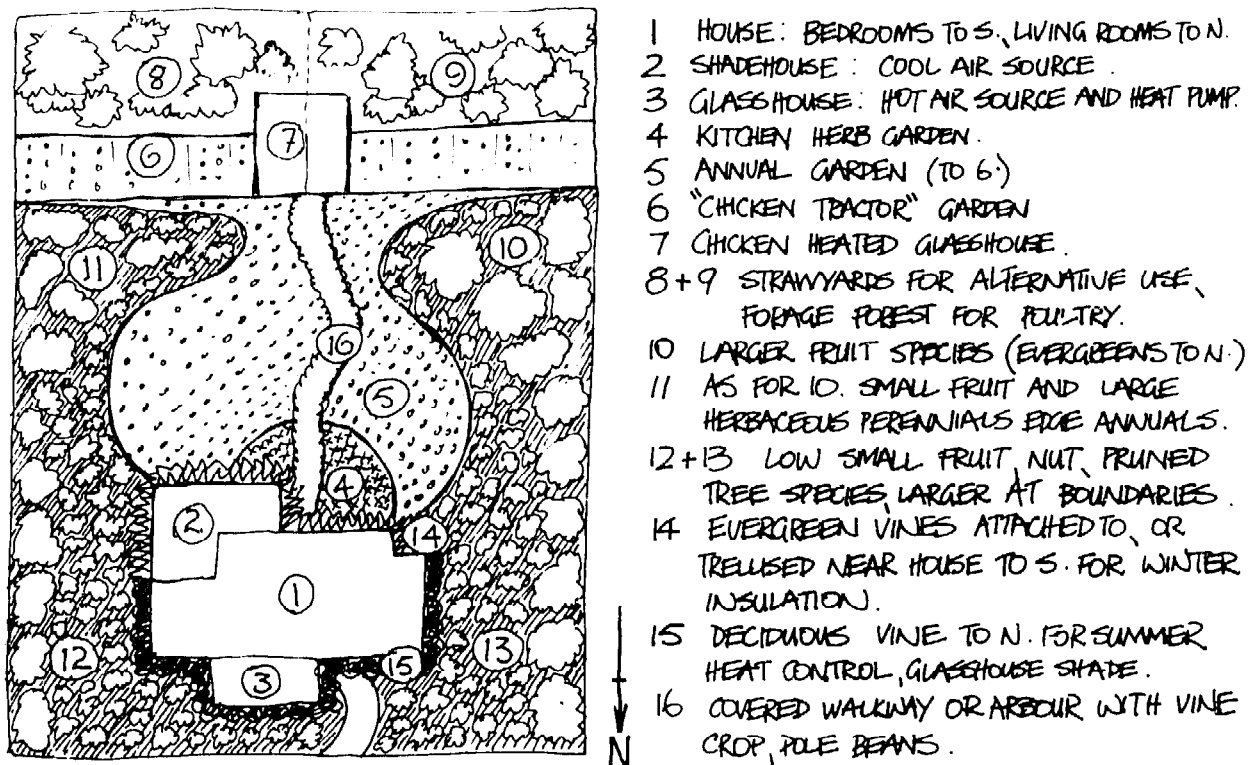 1 HOUSE: BEDROOMS TO S., LIVING ROOMS TO N.
2 SHADEHOUSE: COOL AIR SOURCE.
3 GLASSHOUSE: HOT AIR SOURCE AND HEAT PUMP.
4 KITCHEN HERB GARDEN.
5 ANNUAL GARDEN (TO 6.)
6 "CHICKEN TRACTOR" GARDEN
7 CHICKEN HEATED GLASSHOUSE.
8+9 STRAWYARDS FOR ALTERNATIVE USE,
FORAGE FOREST FOR POULTRY.
10 LARGER FRUIT SPECIES (EVERGREENS TO N.)
11 AS FOR 10. SMALL FRUIT AND LARGE
HERBACEOUS PERENNIALS EDGE ANNUALS.
12+13 LOW SMALL FRUIT, NUT, PRUNED
TREE SPECIES, LARGER AT BOUNDARIES.
14 EVERGREEN VINES ATTACHED TO, OR
TRELLISED NEAR HOUSE TO S. FOR WINTER
INSULATION.
15 DECIDUOUS VINE TO N. FOR SUMMER
HEAT CONTROL, GLASSHOUSE SHADE.
16 COVERED WALKWAY OR ARBOUR WITH VINE
CROP, POLE BEANS.
8
9
7
6
11
10
16
5
4
2
14
1
12
15
13
3
N